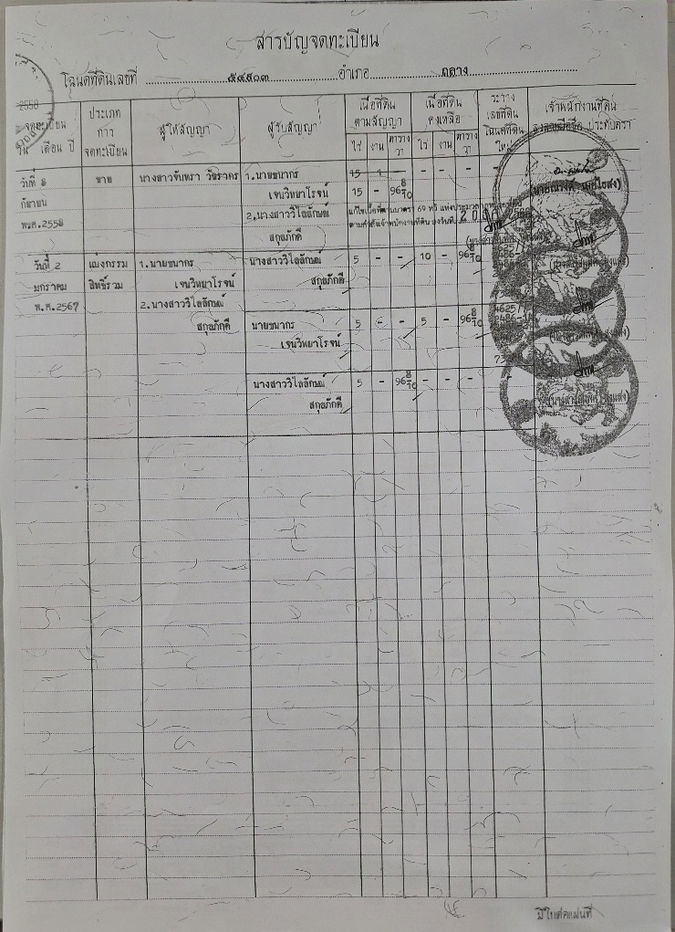 สารบัญจดทะเบียน
โฉนดที่ดินเลขที่ ๕๔๙๐๓ อำเภอ ถลาง
จดทะเบียน วัน เดือน ปี
ประเภท การ จดทะเบียน
ผู้ให้สัญญา
ผู้รับสัญญา
เนื้อที่ดิน ตามสัญญา
ไร่ งาน ตาราง วา
เนื้อที่ดิน คงเหลือ
ไร่ งาน ตาราง วา
ระวาง เลขที่ดิน โฉนดที่ดิน ใหม่
เจ้าพนักงานที่ดิน ลงลายมือชื่อ ประทับตรา
วันที่ 8 ขาย นางสาวจันทรา 1.นายธนากร 15 1 - - - - -
กันยายน เจนวิทยาโรจน์ 15 - 96 8/10
พ.ศ.2558 2.นางสาววิไลลักษณ์ แก้ไขเนื้อที่ตามมาตรา 69 ทวิ แห่งประมวลกฎหมายที่ดิน
สกุลภักดี ตามคำสั่งเจ้าพนักงานที่ดิน ลงวันที่
วันที่ 2 แบ่งกรรม 1.นายธนากร นางสาววิไลลักษณ์ 5 - - 10 - 96 8/10
มกราคม สิทธิ์รวม เจนวิทยาโรจน์ สกุลภักดี
พ.ศ.2567 2.นางสาววิไลลักษณ์
สกุลภักดี นายธนากร 5 - - 5 - 96 8/10
เจนวิทยาโรจน์
นางสาววิไลลักษณ์ 5 - 96 8/10 - - -
สกุลภักดี
มีใบต่อแผ่นที่